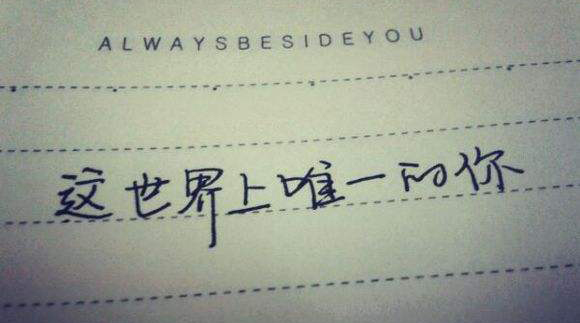 ALWAYSBESIDEYOU
这世界上唯一的你